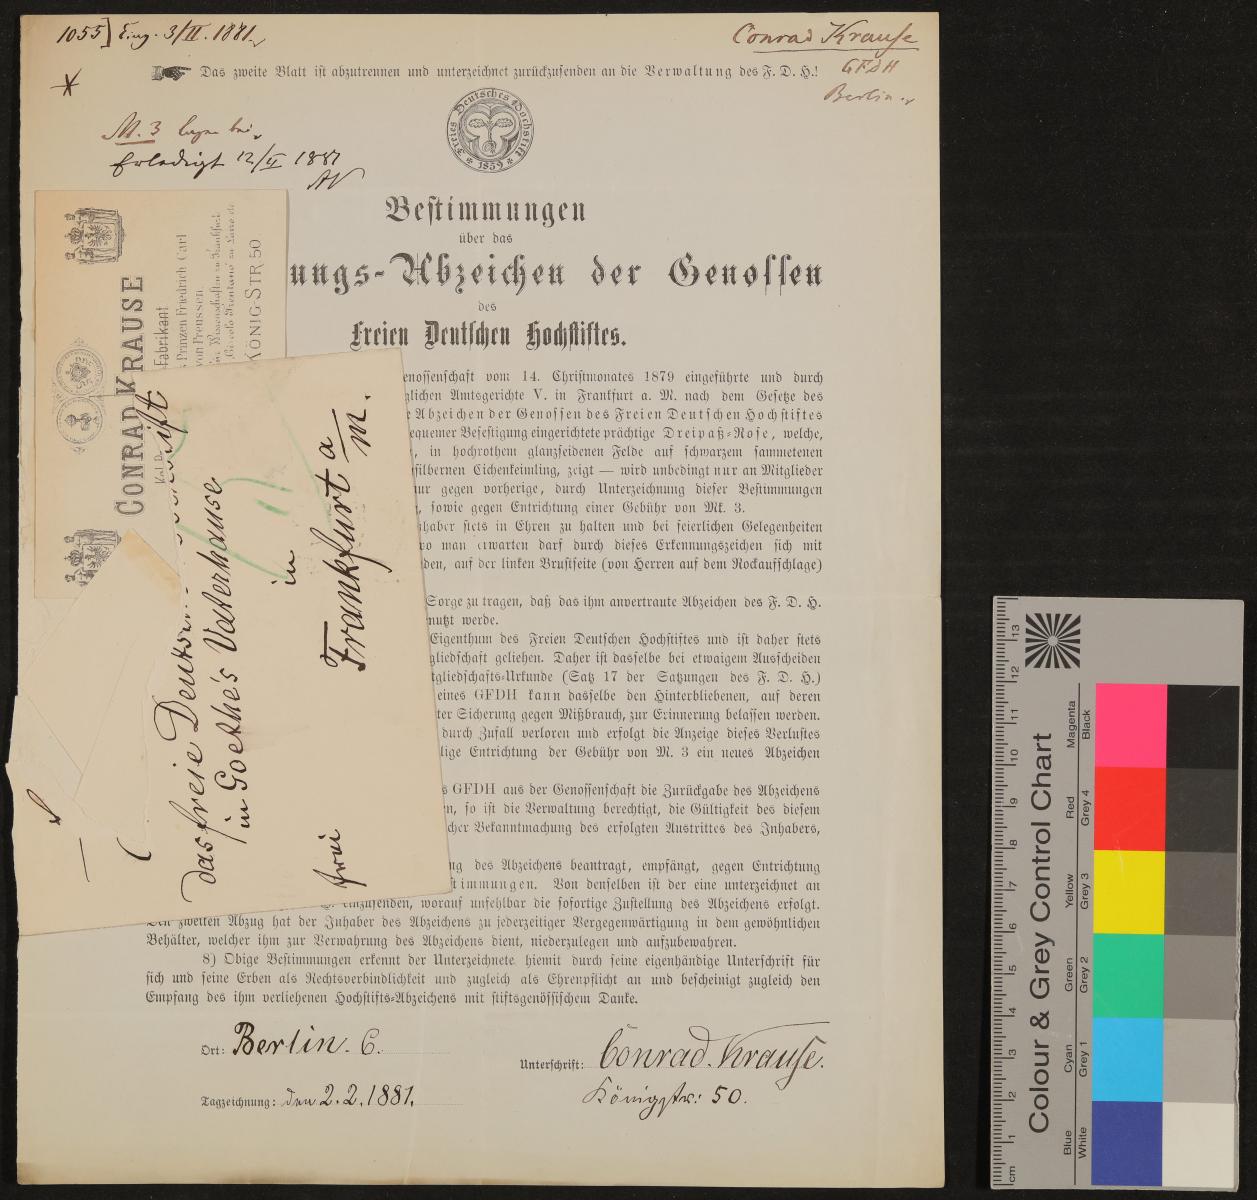 1055] Eing. 3/II. 1881.
Conrad Krause
GFDH
Berlin.
Das zweite Blatt ist abzutrennen und unterzeichnet zurückzusenden an die Verwaltung des F. D. H.!
M. 3 lagen bei.
Erledigt 12/II 1881
Freies Deutsches Hochstift
* 1859 *
Bestimmungen
über das
ungs-Abzeichen der Genossen
des
Freien Deutschen Hochstiftes.
CONRAD KRAUSE
Fabrikant
Prinzen Friedrich Carl
von Preussen.
KÖNIG-STR 50
das freie Deutsch
in Goethe's Vaterhause
in
Frankfurt a/m.
frei
enossenschaft vom 14. Christmonates 1879 eingeführte und durch
glichen Amtsgerichte V. in Frankfurt a. M. nach dem Gesetze des
e Abzeichen der Genossen des Freien Deutschen Hochstiftes
equemer Befestigung eingerichtete prächtige Dreipaß-Rose, welche,
, in hochrothem glanzseidenen Felde auf schwarzem sammetenen
silbernen Eichenkeimling, zeigt — wird unbedingt nur an Mitglieder
ur gegen vorherige, durch Unterzeichnung dieser Bestimmungen
, sowie gegen Entrichtung einer Gebühr von Mk. 3.
haber stets in Ehren zu halten und bei feierlichen Gelegenheiten
wo man erwarten darf durch dieses Erkennungszeichen sich mit
den, auf der linken Brustseite (von Herren auf dem Rockaufschlage)
Sorge zu tragen, daß das ihm anvertraute Abzeichen des F. D. H.
nutzt werde.
Eigenthum des Freien Deutschen Hochstiftes und ist daher stets
gliedschaft geliehen. Daher ist dasselbe bei etwaigem Ausscheiden
tgliedschafts-Urkunde (Satz 17 der Satzungen des F. D. H.)
eines GFDH kann dasselbe den Hinterbliebenen, auf deren
ter Sicherung gegen Mißbrauch, zur Erinnerung belassen werden.
durch Zufall verloren und erfolgt die Anzeige dieses Verlustes
lige Entrichtung der Gebühr von M. 3 ein neues Abzeichen
s GFDH aus der Genossenschaft die Zurückgabe des Abzeichens
n, so ist die Verwaltung berechtigt, die Gültigkeit des diesem
cher Bekanntmachung des erfolgten Austrittes des Inhabers,
ng des Abzeichens beantragt, empfängt, gegen Entrichtung
stimmungen. Von denselben ist der eine unterzeichnet an
einzusenden, worauf unfehlbar die sofortige Zustellung des Abzeichens erfolgt.
Den zweiten Abzug hat der Inhaber des Abzeichens zu jederzeitiger Vergegenwärtigung in dem gewöhnlichen
Behälter, welcher ihm zur Verwahrung des Abzeichens dient, niederzulegen und aufzubewahren.
8) Obige Bestimmungen erkennt der Unterzeichnete hiemit durch seine eigenhändige Unterschrift für
sich und seine Erben als Rechtsverbindlichkeit und zugleich als Ehrenpflicht an und bescheinigt zugleich den
Empfang des ihm verliehenen Hochstifts-Abzeichens mit stiftsgenössischem Danke.
Ort: Berlin. C.
Unterschrift: Conrad. Krause.
Königstr: 50.
Tagzeichnung: den 2. 2. 1881.
Colour & Grey Control Chart
Blue Cyan Green Yellow Red Magenta
White Grey 1 Grey 2 Grey 3 Grey 4 Black
cm 1 2 3 4 5 6 7 8 9 10 11 12 13